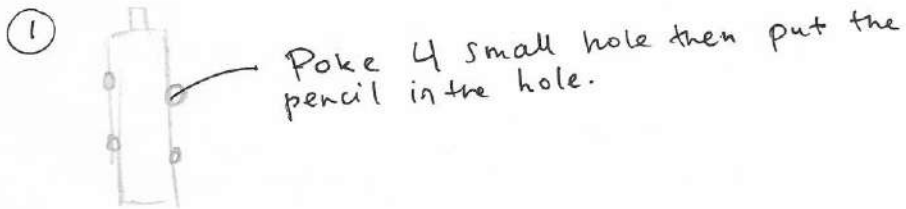 1
Poke 4 small hole then put the
pencil in the hole.